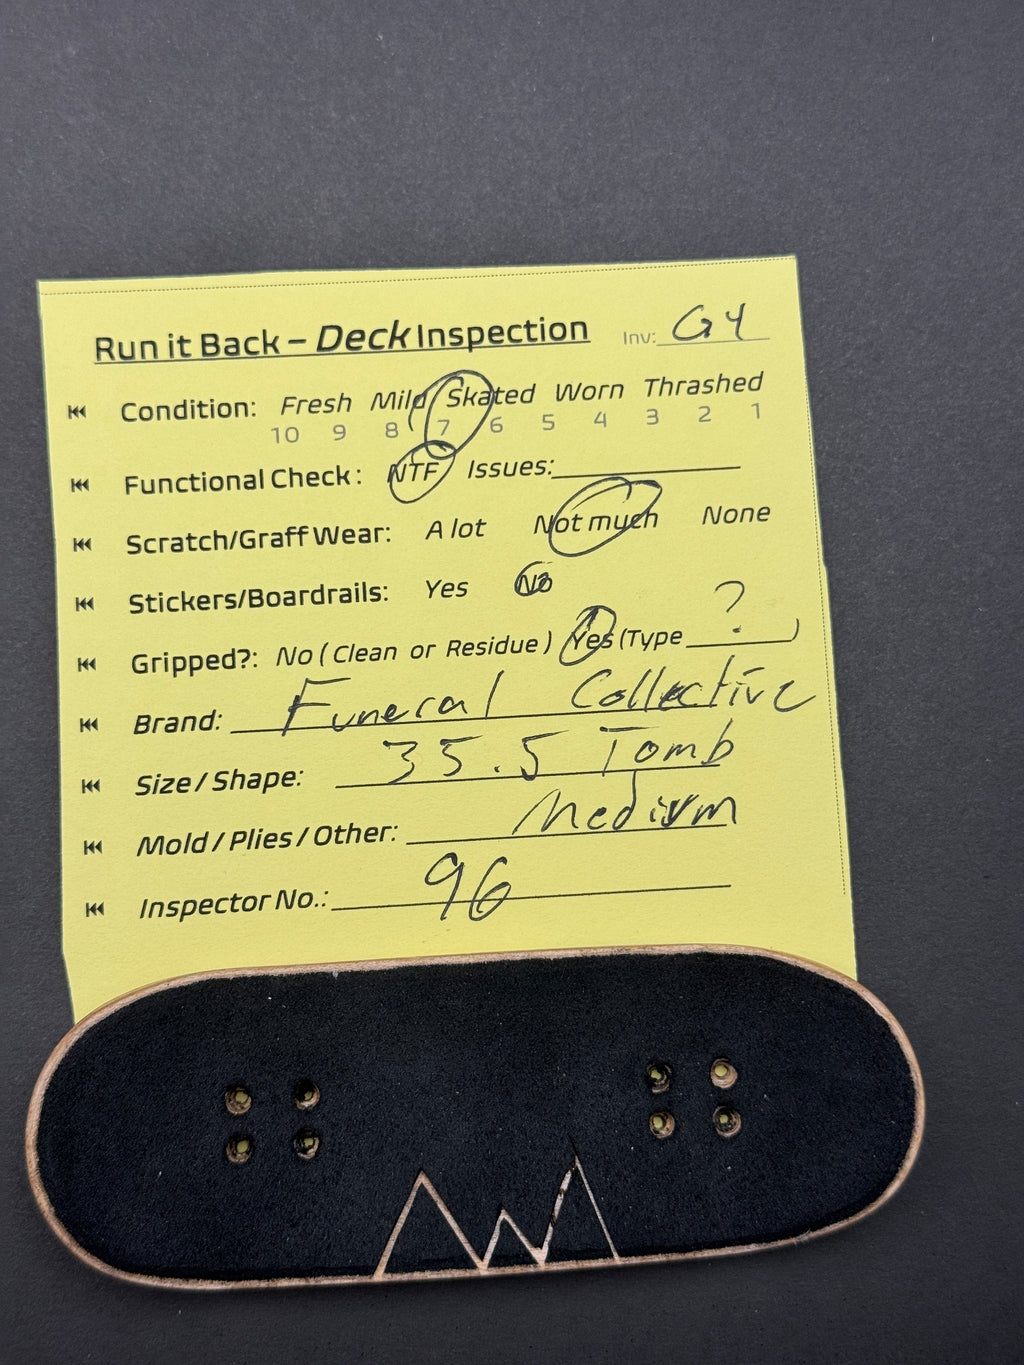 Run it Back – Deck Inspection Inv: G4
Condition: Fresh Mild Skated Worn Thrashed
10 9 8 7 6 5 4 3 2 1
Functional Check: NTF Issues:
Scratch/Graff Wear: A lot Not much None
Stickers/Boardrails: Yes No
Gripped?: No (Clean or Residue) Yes (Type ? )
Brand: Funeral Collective
Size / Shape: 35.5 Tomb
Mold / Plies / Other: Medium
Inspector No.: 96